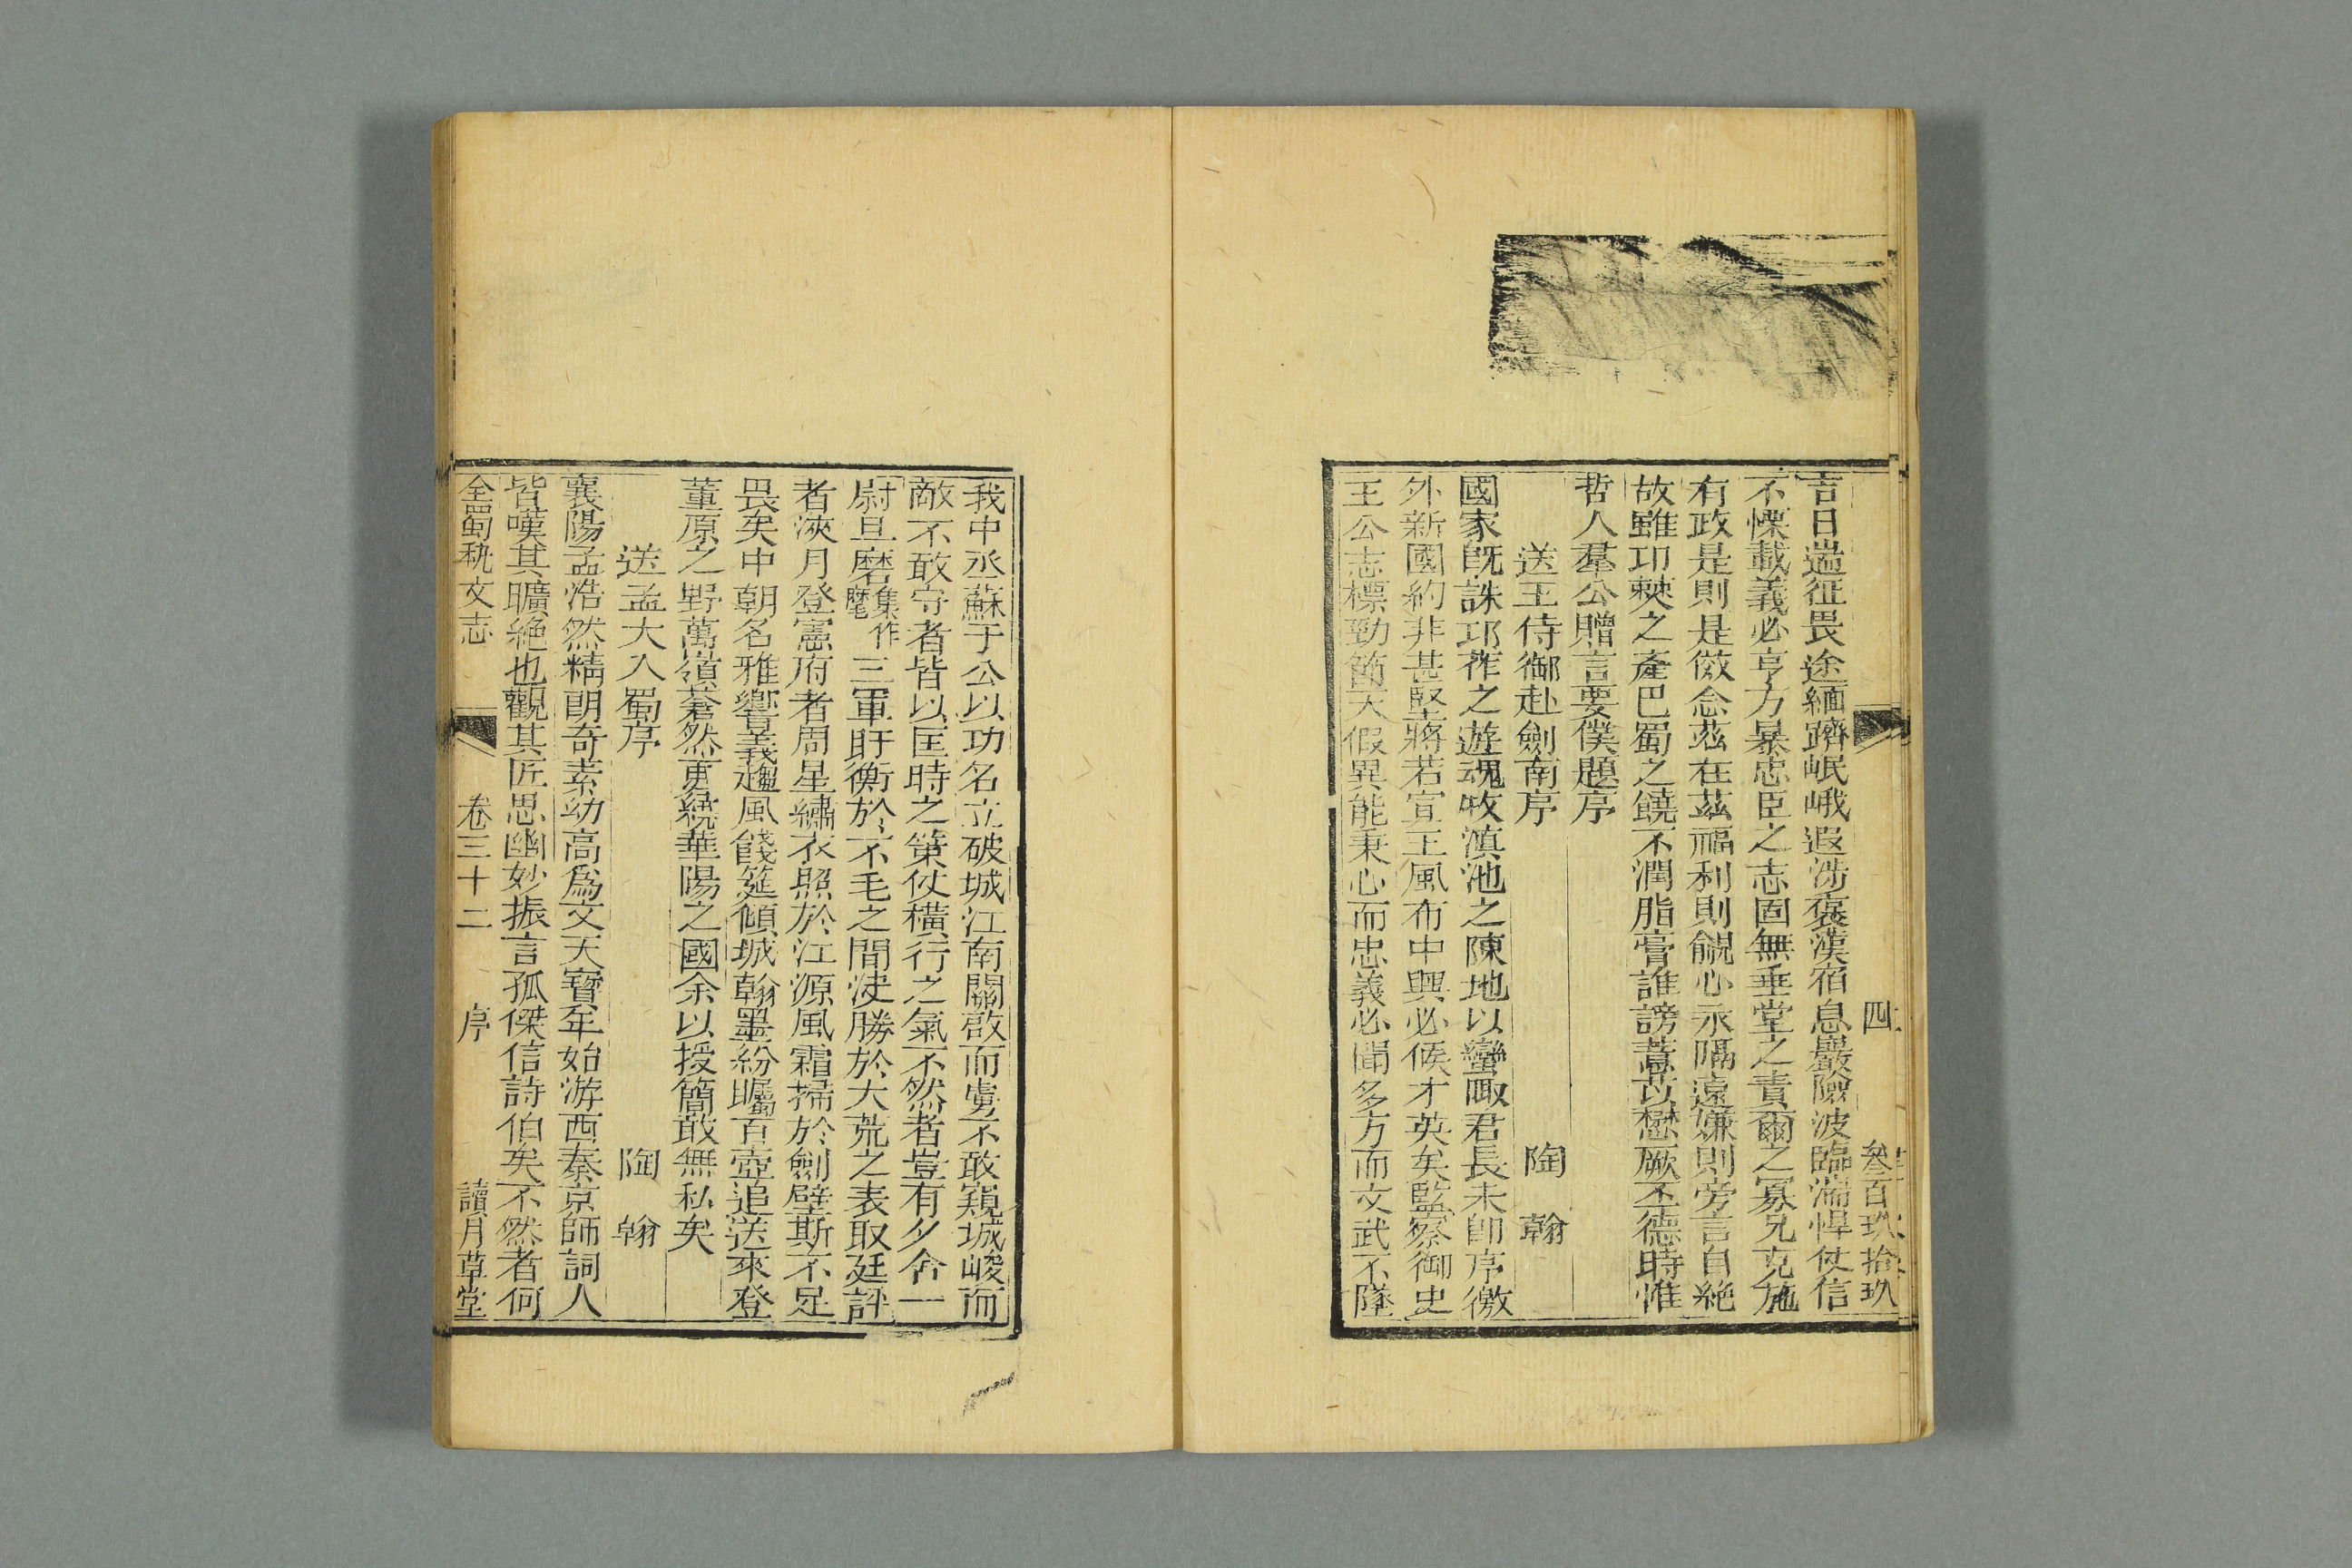 四 叁百玖拾玖
吉日遄征畏途緬躋岷峨遐涉褒漢宿息巖險波臨湍悍仗信
不慄載義必亨方暴忠臣之志固無垂堂之責爾之冢兄克施
有政是則是傚念茲在茲福利則覦心永隔遠嫌則旁言自絶
故雖卭僰之產巴蜀之饒不潤脂膏誰謗薏苡懋厥丕德時惟
哲人羣公贈言要僕題序
送王侍御赴劍南序 陶翰
國家旣誅邛莋之遊魂收滇池之陳地以蠻陬君長未卽序徼
外新國約非甚堅蔣若宣王風布中興必候才英矣監察御史
王公志標勁節天假異能秉心而忠義必聞多方而文武不墜
我中丞蘇于公以功名立破城江南關啟而虜不敢窺城峻而
敵不敢守者皆以匡時之策仗橫行之氣不然者豈有夕舍一
尉旦磨集作麾三軍盱衡於不毛之間决勝於大荒之表取廷評
者浹月登憲府者周星繡衣照於江源風霜掃於劍壁斯不足
畏矣中朝名雅嚮義趨風餞筵傾城翰墨紛矚百壺追送來登
董原之野萬嶺蒼然更繞華陽之國余以授簡敢無私矣
送孟大入蜀序 陶翰
襄陽孟浩然精朗奇素幼高爲文天寶年始游西秦京師詞人
皆嘆其曠絶也觀其匠思幽妙振言孤傑信詩伯矣不然者何
全蜀秇文志 卷三十二 序 讀月草堂